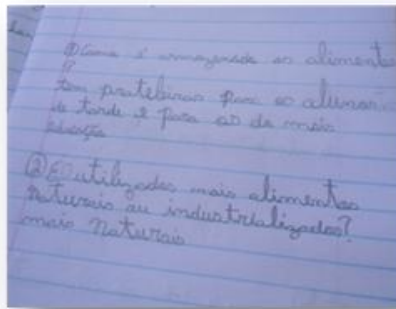 ① Como é armazenado os alimentos
?
tem prateleiras para os alunos
da tarde e para os de mais
educação
② É utilizados mais alimentos
naturais ou industrializados?
mais naturais